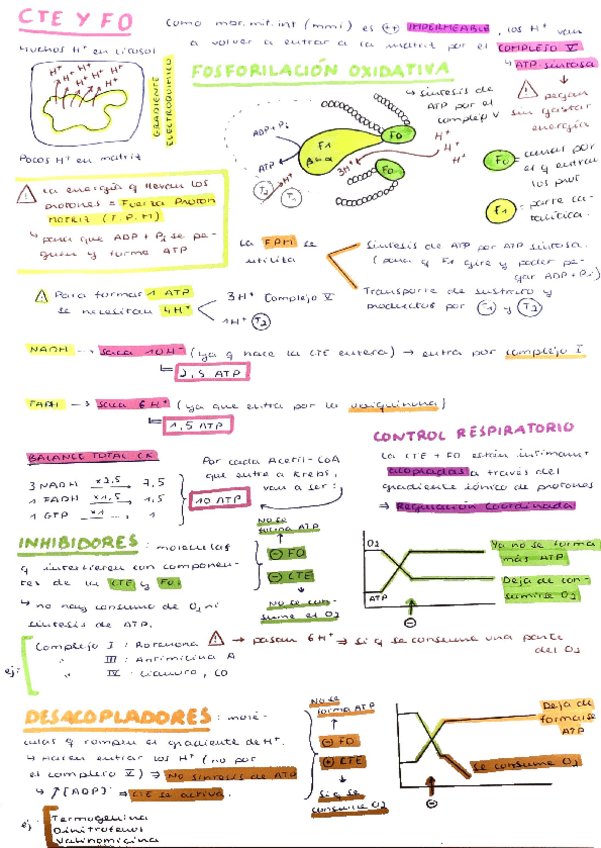 CTE Y FO
como mbr.mit.int (mmi) es ++ IMPERMEABLE, los H+ van
a volver a entrar a la matriz por el COMPLEJO V
↳ ATP sintasa
Muchos H+ en citosol
H+ H+ H+ H+ H+
GRADIENTE ELECTROQUÍMICO
Pocos H+ en matriz
FOSFORILACIÓN OXIDATIVA
↳ síntesis de
ATP por el
complejo V
pegan
sin gastar
energía
ADP + Pi
ATP
F1
FO
3H+
H+
H+
H+
H+
T2
T1
FO = canal por
el q entran
los prot
F1 = parte ca-
talítica.
La energía q llevan los
protones = Fuerza Proton
MOTRIZ (F.P.M)
↳ para que ADP + Pi se pe-
guen y forme ATP
La FPM se
utiliza
Síntesis de ATP por ATP sintasa.
(para q F1 gire y poder pe-
gar ADP + Pi)
Transporte de sustrato y
productos por T1 y T2
Para formar 1 ATP
se necesitan 4H+
3H+ Complejo V
1H+ T2
NADH → saca 10H+ (ya q hace la CTE entera) → entra por complejo I
2,5 ATP
FADH → saca 6H+ (ya que entra por la ubiquinona)
1,5 ATP
BALANCE TOTAL CK
3 NADH x2,5 → 7,5
1 FADH x1,5 → 1,5
1 GTP x1 → 1
10 ATP
Por cada Acetil-CoA
que entre a Krebs,
van a ser:
CONTROL RESPIRATORIO
La CTE + FO están intimam+
acopladas a través del
gradiente iónico de protones
⇒ Regulación coordinada
INHIBIDORES: moléculas
q interfieren con componen-
tes de la CTE y FO.
↳ no hay consumo de O2 ni
síntesis de ATP.
No se
fabrica ATP
⊖ FO
⊖ CTE
No se con-
sume el O2
O2
ATP
⊖
Ya no se forma
más ATP
Deja de con-
sumirse O2
ej:
Complejo I : Rotenona → pasan 6H+ ⇒ sí q se consume una parte
del O2
" III : Antimicina A
" IV : Cianuro, CO
DESACOPLADORES: molé-
culas q rompen el gradiente de H+.
↳ Hacen entrar los H+ (no por
el complejo V) ⇒ No síntesis de ATP
↳ ↑[ADP] ⇒ CTE se activa.
No se
forma ATP
⊖ FO
⊕ CTE
Sí q se
consume O2
⊖
Deja de
formarse
ATP
Se consume O2
ej:
Termogenina
Dinitrofenol
Valinomicina